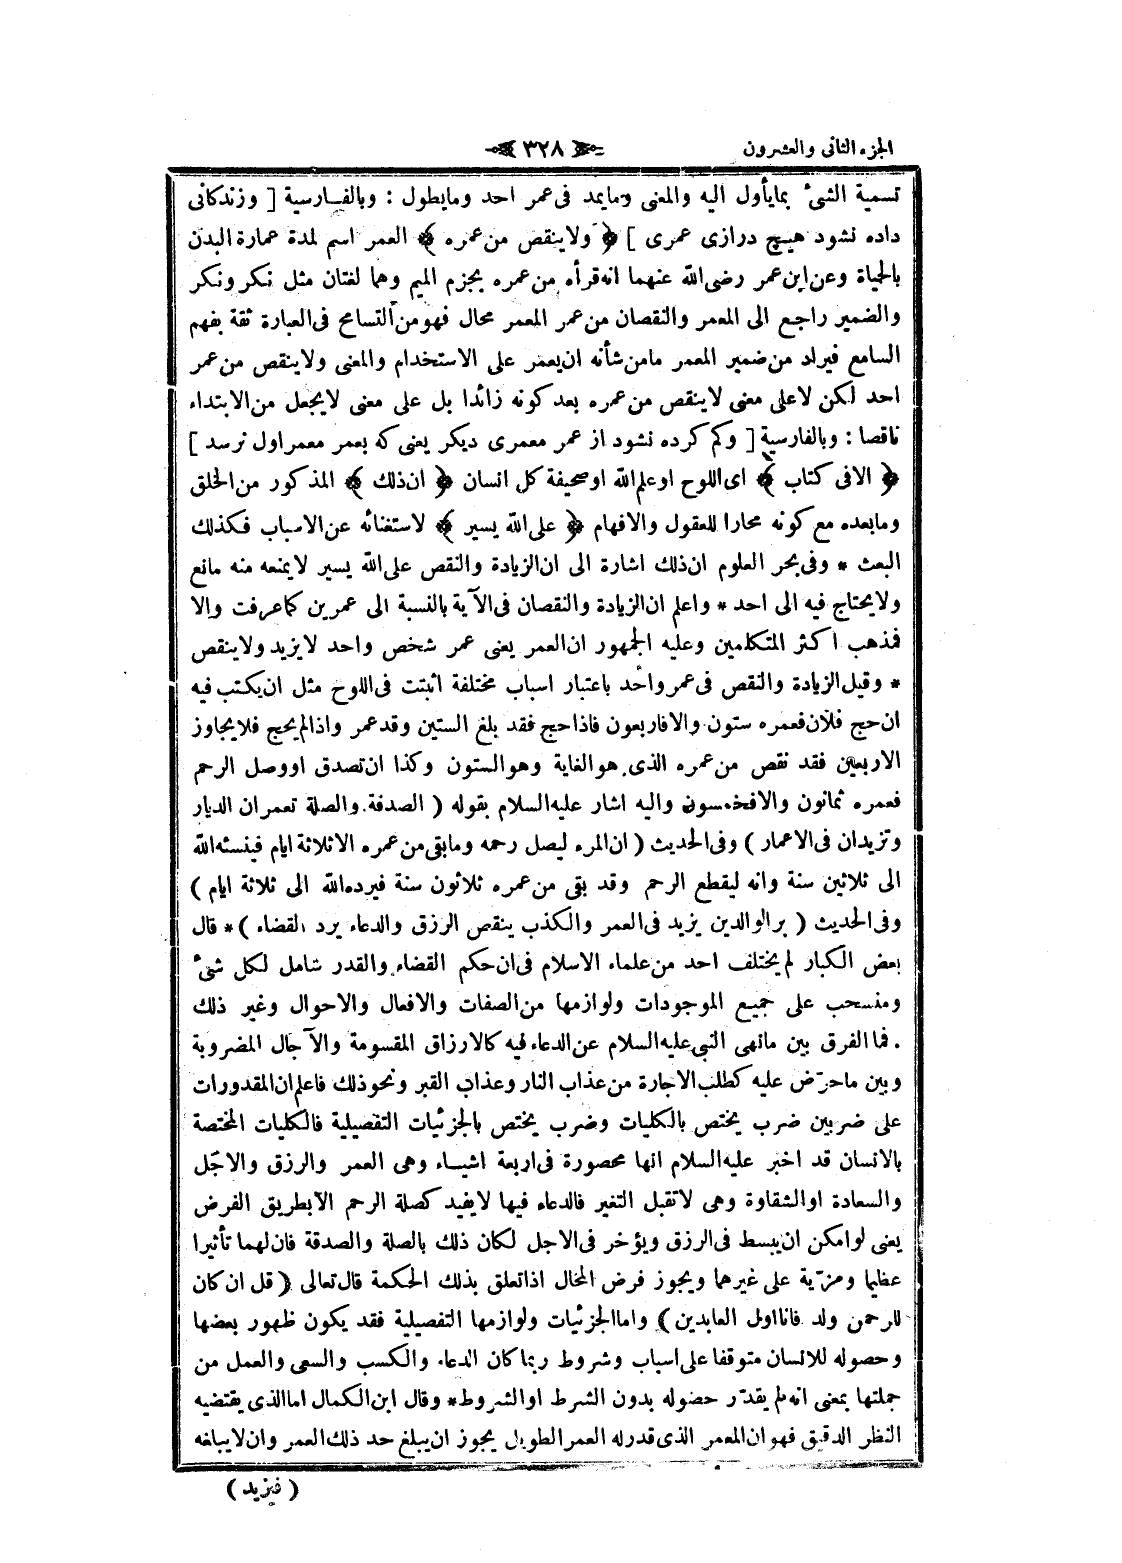 الجزء الثانى والعشرون
٣٢٨
تسمية الشئ بمايأول اليه والمعنى ومايمد فى عمر احد ومايطول : وبالفارسية [ وزندكانى
داده نشود هيچ درازى عمرى ] ﴿ ولاينقص من عمره ﴾ العمر اسم لمدة عمارة البدن
بالحياة وعن ابن عمر رضى الله عنهما انه قرأه من عمره بجزم الميم وهما لغتان مثل نكر ونكر
والضمير راجع الى المعمر والنقصان من عمر المعمر محال فهو من التسامح فى العبارة ثقة بفهم
السامع فيراد من ضمير المعمر مامن شأنه ان يعمر على الاستخدام والمعنى ولاينقص من عمر
احد لكن لاعلى معنى لاينقص من عمره بعد كونه زائدا بل على معنى لايجعل من الابتداء
ناقصا : وبالفارسية [ وكم كرده نشود از عمر معمرى ديكر يعنى كه بعمر معمر اول نرسد ]
﴿ الا فى كتاب ﴾ اى اللوح او علم الله او صحيفة كل انسان ﴿ ان ذلك ﴾ المذكور من الخلق
ومابعده مع كونه محارا للعقول والافهام ﴿ على الله يسير ﴾ لاستغنائه عن الاسباب فكذلك
البعث * وفى بحر العلوم ان ذلك اشارة الى ان الزيادة والنقص على الله يسير لايمنعه منه مانع
ولايحتاج فيه الى احد * واعلم ان الزيادة والنقصان فى الآية بالنسبة الى عمرين كما عرفت والا
فمذهب اكثر المتكلمين وعليه الجمهور ان العمر يعنى عمر شخص واحد لايزيد ولاينقص
* وقيل الزيادة والنقص فى عمر واحد باعتبار اسباب مختلفة اثبتت فى اللوح مثل ان يكتب فيه
ان حج فلان فعمره ستون والا فاربعون فاذا حج فقد بلغ الستين وقد عمر واذا لم يحج فلايجاوز
الاربعين فقد نقص من عمره الذى هو الغاية وهو الستون وكذا ان تصدق او وصل الرحم
فعمره ثمانون والا فخمسون واليه اشار عليه السلام بقوله ( الصدقة والصلة تعمران الديار
وتزيدان فى الاعمار ) وفى الحديث ( ان المرء ليصل رحمه ومابقى من عمره الا ثلاثة ايام فينسئه الله
الى ثلاثين سنة وانه ليقطع الرحم وقد بقى من عمره ثلاثون سنة فيرده الله الى ثلاثة ايام )
وفى الحديث ( بر الوالدين يزيد فى العمر والكذب ينقص الرزق والدعاء يرد القضاء ) * قال
بعض الكبار لم يختلف احد من علماء الاسلام فى ان حكم القضاء والقدر شامل لكل شئ
ومنسحب على جميع الموجودات ولوازمها من الصفات والافعال والاحوال وغير ذلك
. فما الفرق بين مانهى النبى عليه السلام عن الدعاء فيه كالارزاق المقسومة والآجال المضروبة
وبين ماحرّض عليه كطلب الاجارة من عذاب النار وعذاب القبر ونحو ذلك فاعلم ان المقدورات
على ضربين ضرب يختص بالكليات وضرب يختص بالجزئيات التفصيلية فالكليات المختصة
بالانسان قد اخبر عليه السلام انها محصورة فى اربعة اشياء وهى العمر والرزق والاجل
والسعادة او الشقاوة وهى لاتقبل التغير فالدعاء فيها لايفيد كصلة الرحم الا بطريق الفرض
يعنى لو امكن ان يبسط فى الرزق ويؤخر فى الاجل لكان ذلك بالصلة والصدقة فان لهما تأثيرا
عظيما ومزيّة على غيرهما ويجوز فرض المحال اذا تعلق بذلك الحكمة قال تعالى ( قل ان كان
للرحمن ولد فانا اول العابدين ) واما الجزئيات ولوازمها التفصيلية فقد يكون ظهور بعضها
وحصوله للانسان متوقفا على اسباب وشروط ربما كان الدعاء والكسب والسعى والعمل من
جملتها بمعنى انه لم يقدّر حصوله بدون الشرط او الشروط * وقال ابن الكمال اما الذى يقتضيه
النظر الدقيق فهو ان المعمر الذى قدر له العمر الطويل يجوز ان يبلغ حد ذلك العمر وان لايبلغه
( فيزيد )